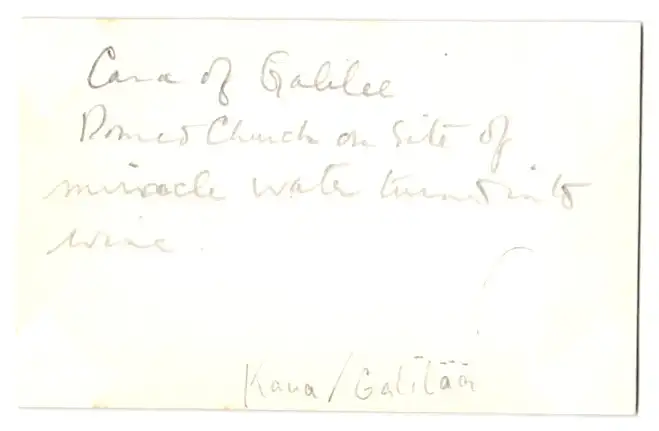 Cana of Galilee
Domed Church on Site of
miracle water turned into
wine.
Kana/Galiläa